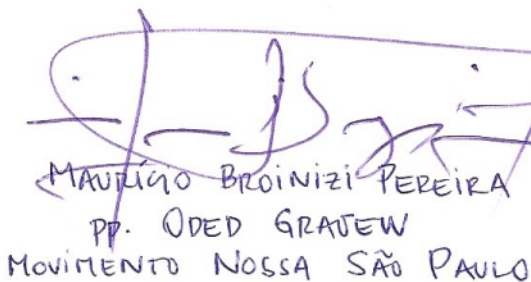 MAURÍCIO BROINIZI PEREIRA
PP. ODED GRAJEW
MOVIMENTO NOSSA SÃO PAULO